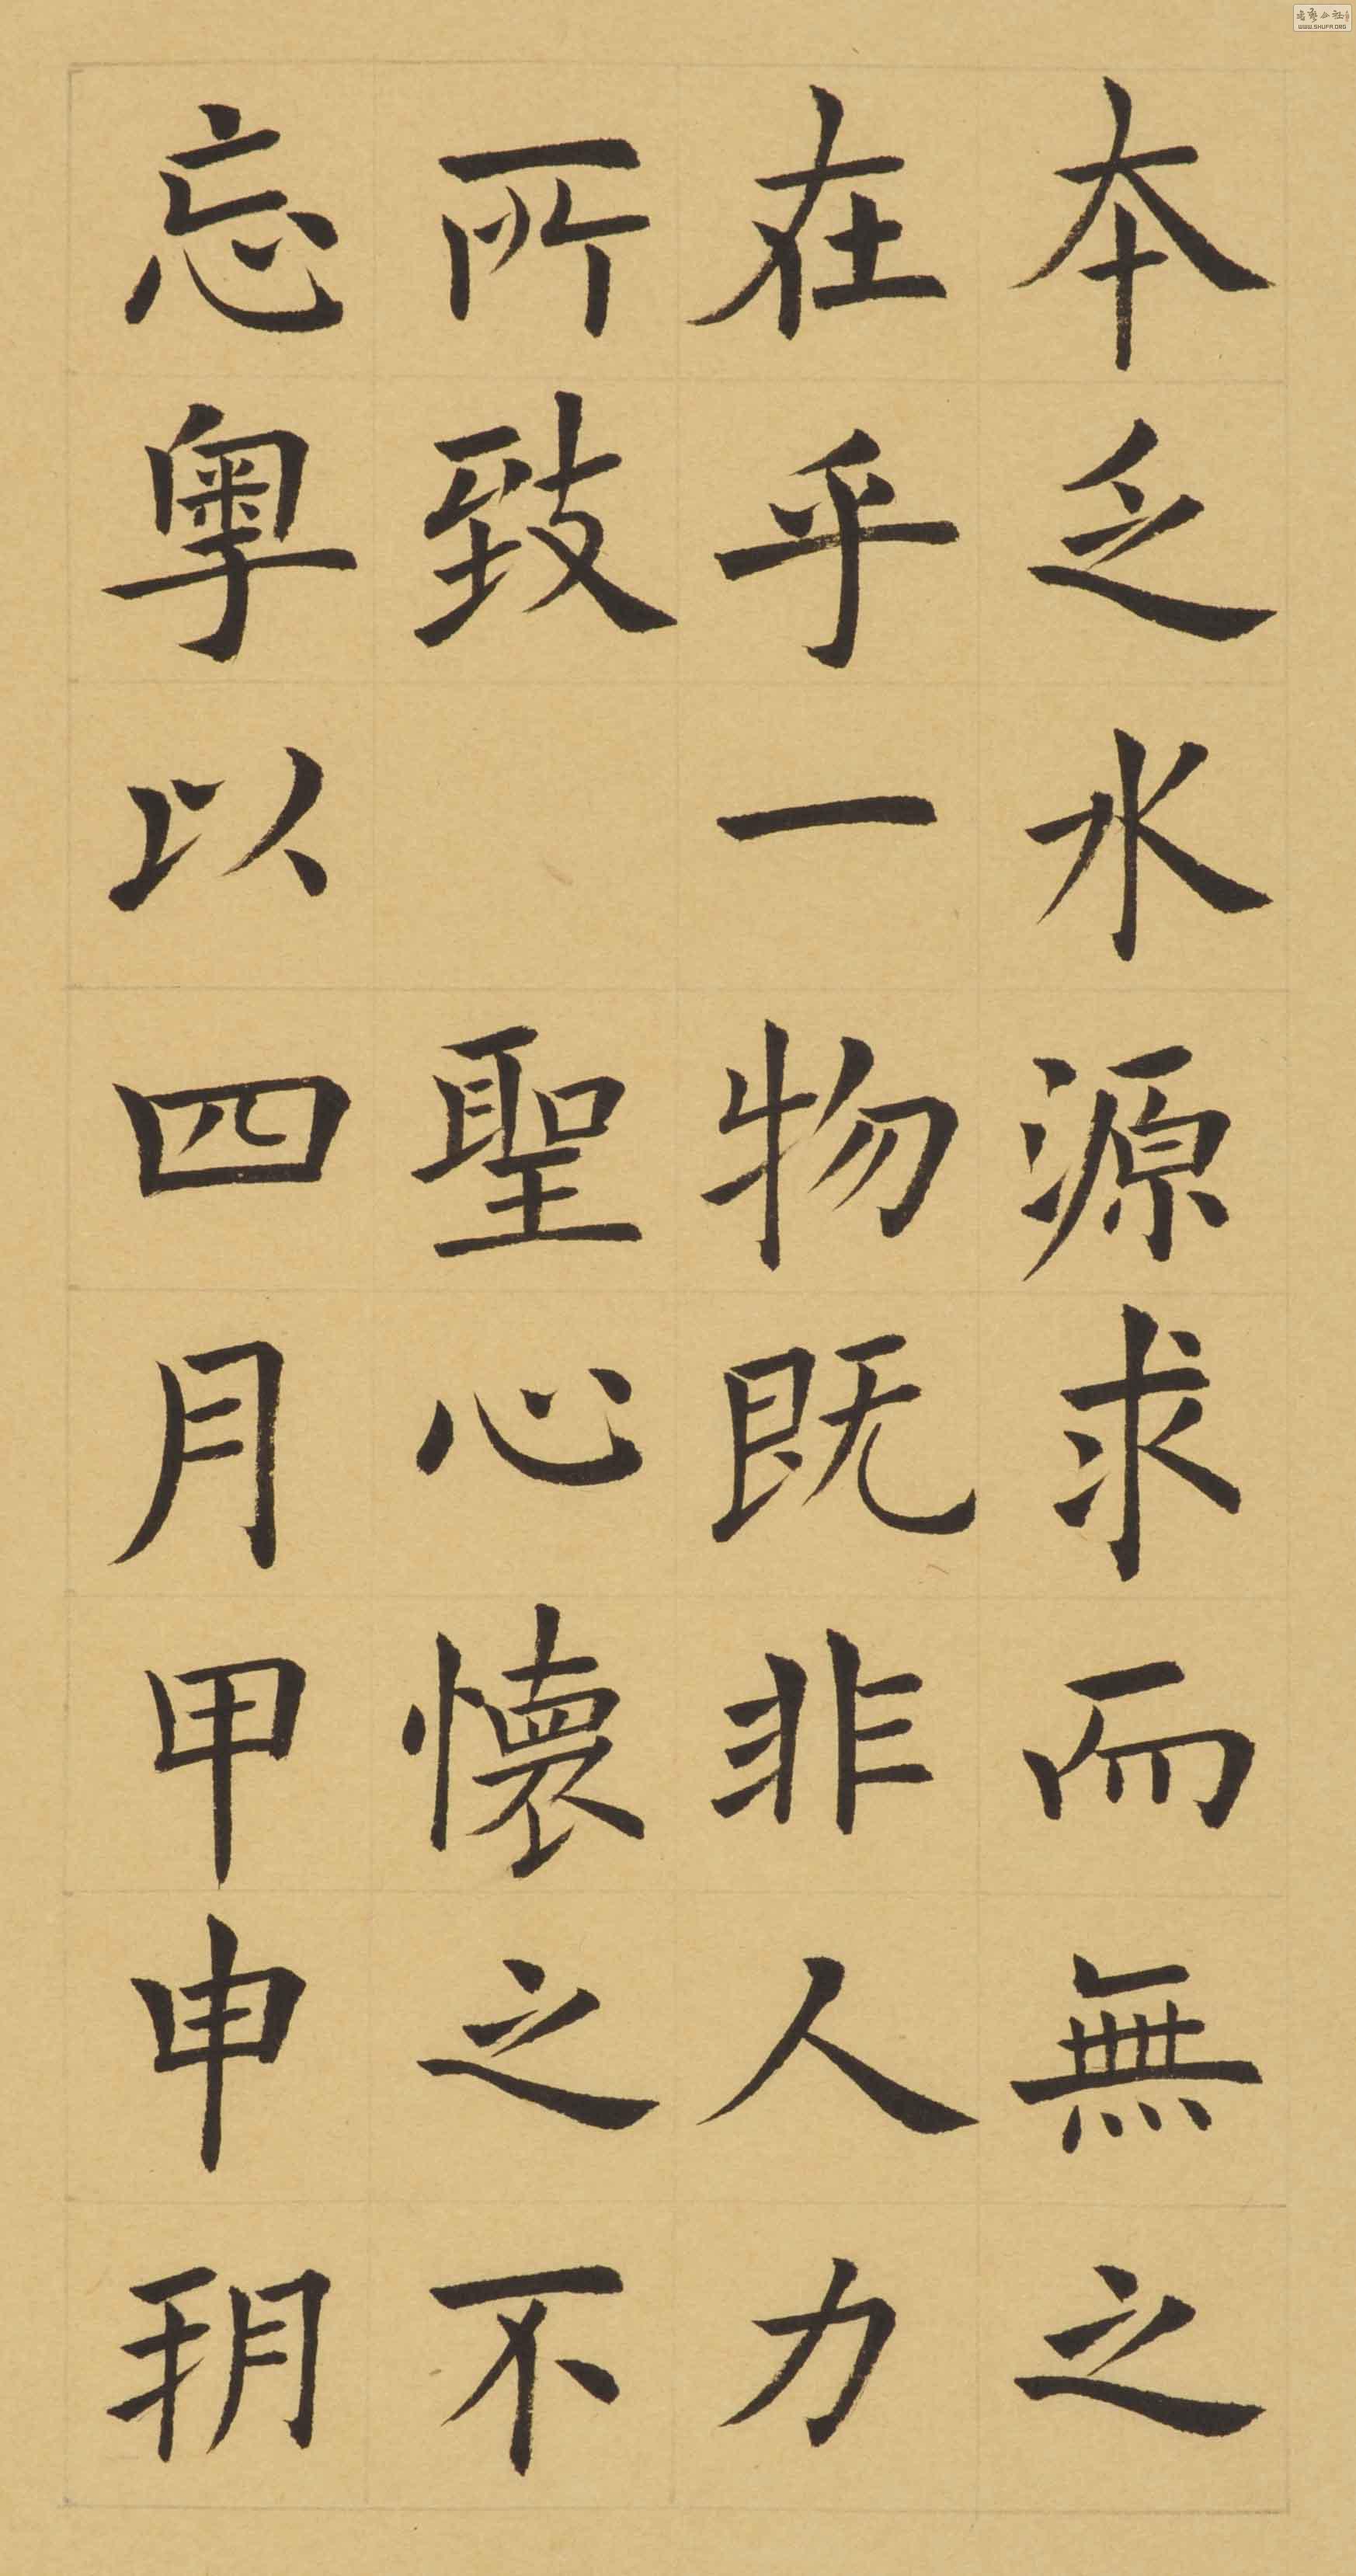 本乏水源求而無之
在乎一物既非人力
所致 聖心懷之不
忘粵以四月甲申朔
WWW.SHUFA.ORG